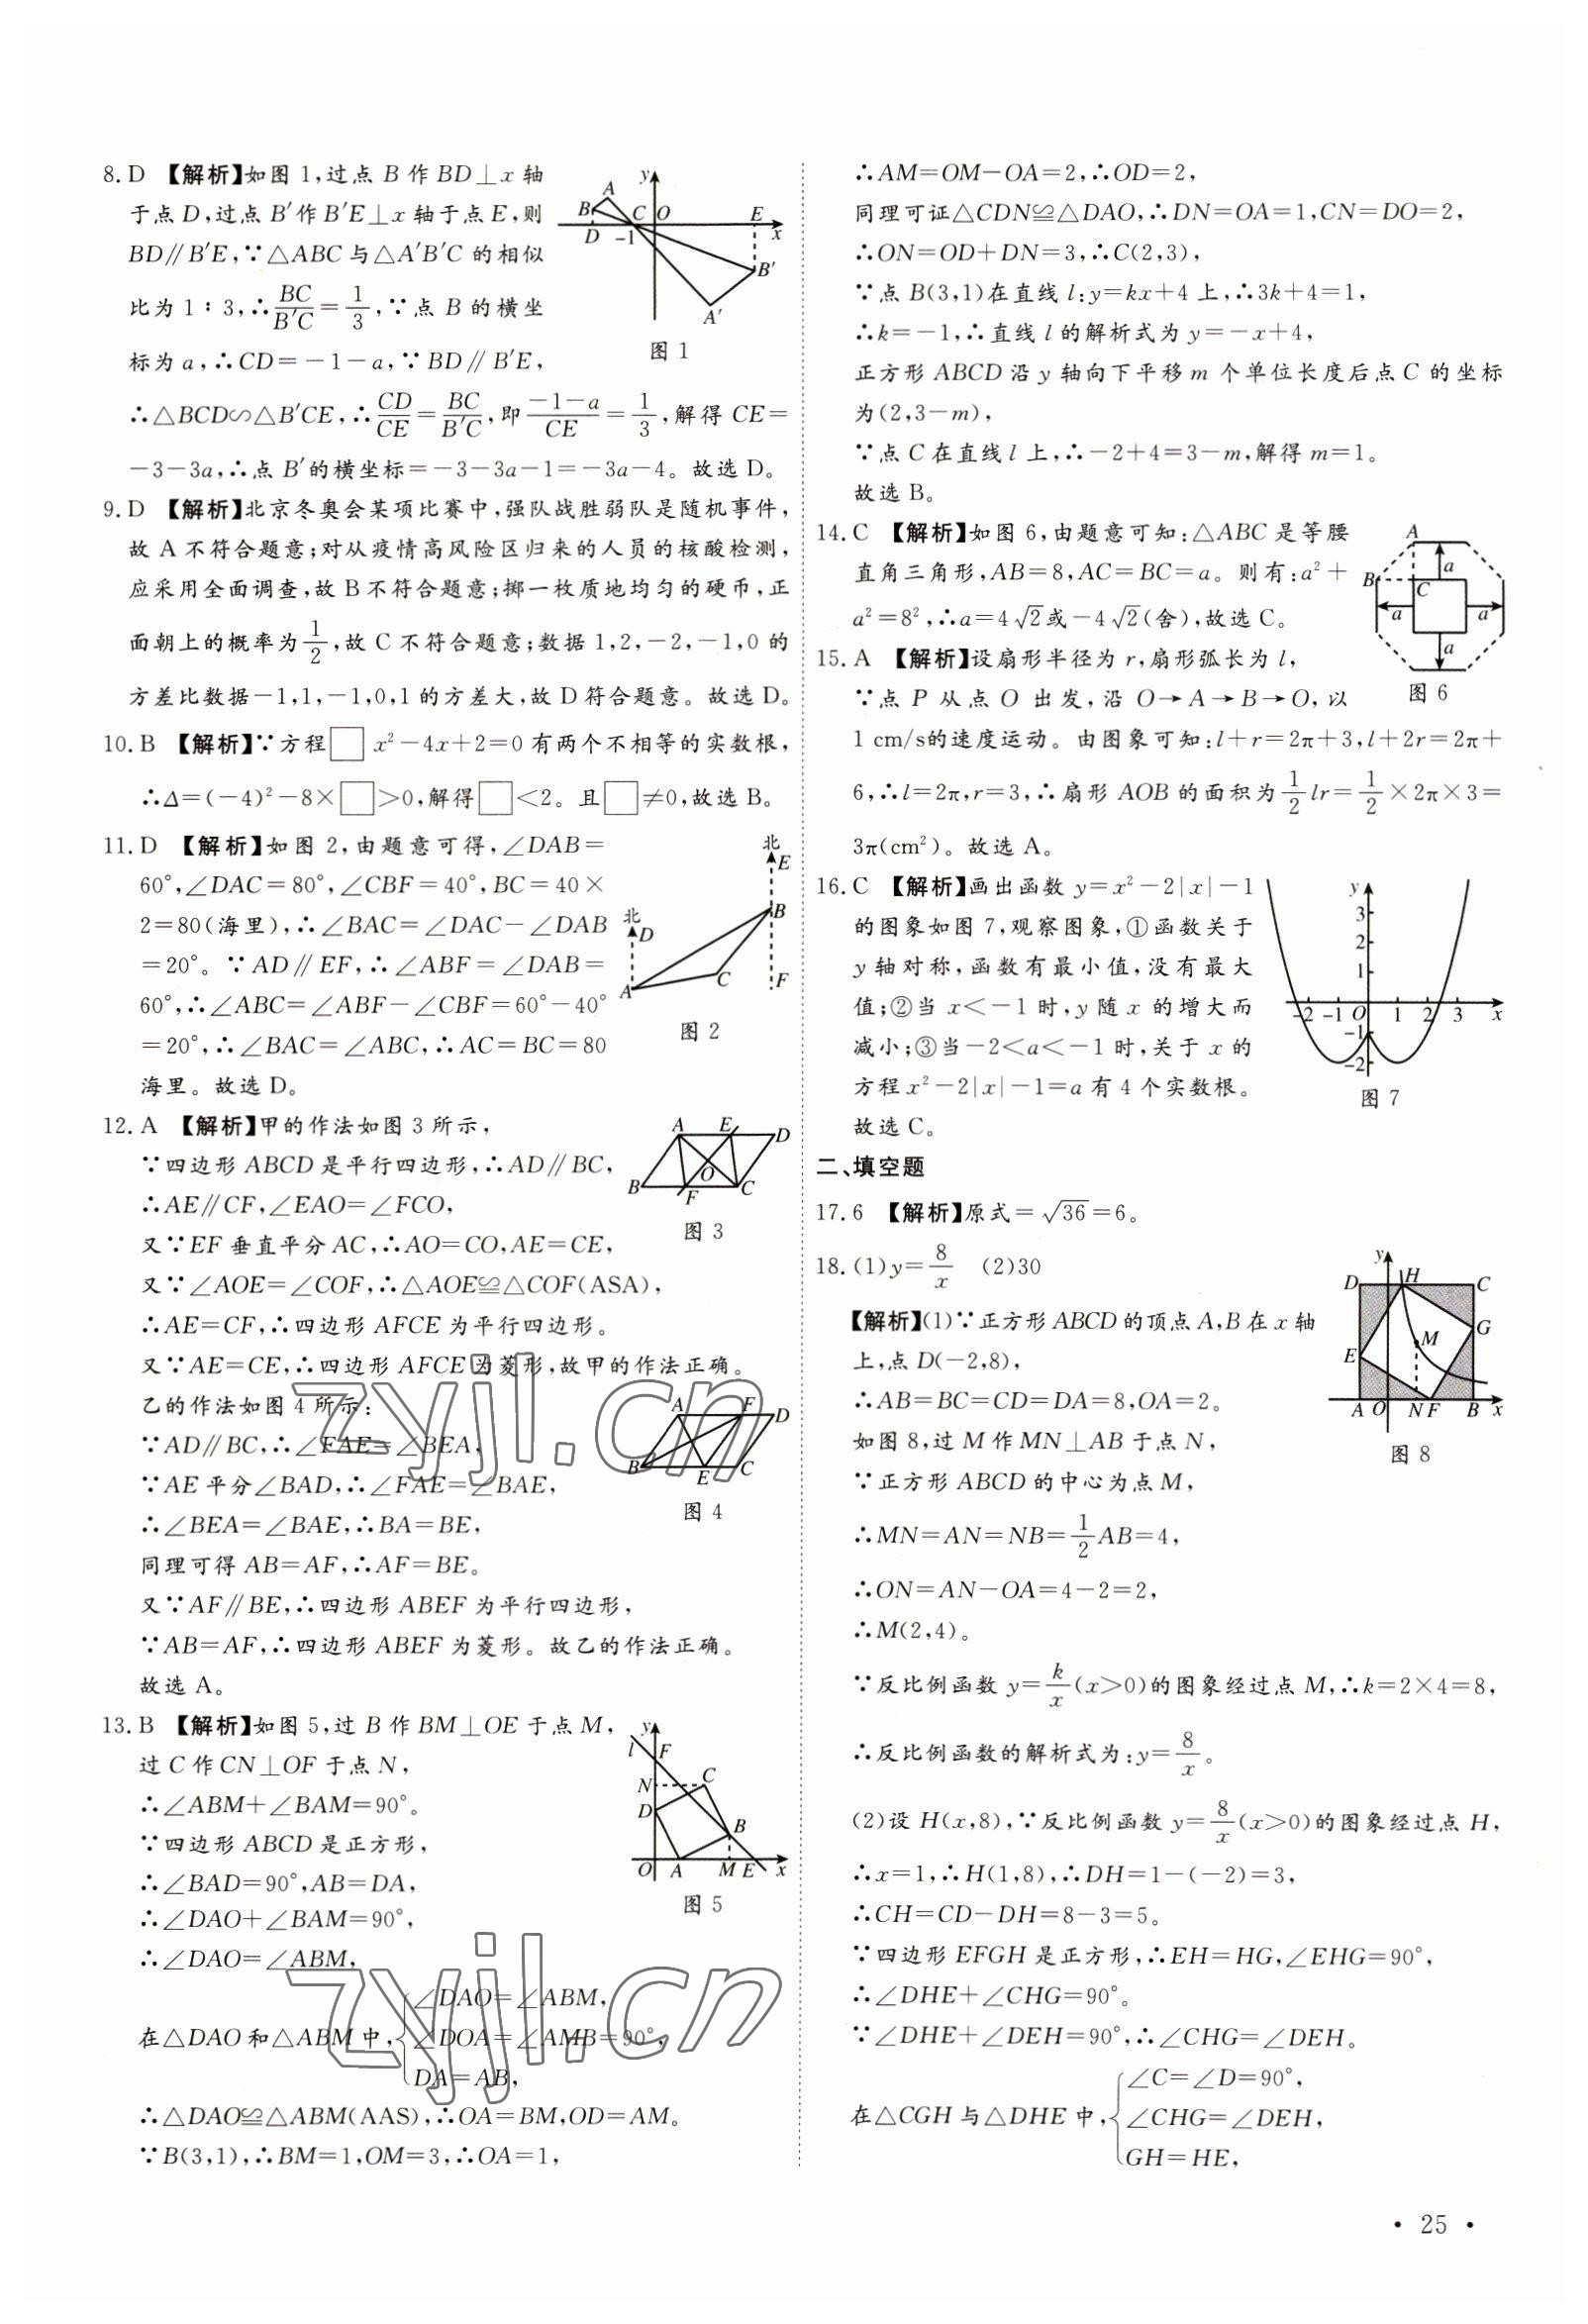 8. D 【解析】如图 1,过点 B 作 BD⊥x 轴
于点 D,过点 B′作 B′E⊥x 轴于点 E,则
BD∥B′E,∵△ABC 与△A′B′C 的相似
比为 1∶3,∴BC/B′C=1/3,∵点 B 的横坐
标为 a,∴CD=-1-a,∵BD∥B′E,
∴△BCD∽△B′CE,∴CD/CE=BC/B′C,即(-1-a)/CE=1/3,解得 CE=
-3-3a,∴点 B′的横坐标=-3-3a-1=-3a-4。故选 D。
y
A
B
C
O
E
D
-1
x
B′
A′
图 1
9. D 【解析】北京冬奥会某项比赛中,强队战胜弱队是随机事件,
故 A 不符合题意;对从疫情高风险区归来的人员的核酸检测,
应采用全面调查,故 B 不符合题意;掷一枚质地均匀的硬币,正
面朝上的概率为1/2,故 C 不符合题意;数据 1,2,-2,-1,0 的
方差比数据-1,1,-1,0,1 的方差大,故 D 符合题意。故选 D。
10. B 【解析】∵方程□x²-4x+2=0 有两个不相等的实数根,
∴Δ=(-4)²-8×□>0,解得□<2。且□≠0,故选 B。
11. D 【解析】如图 2,由题意可得,∠DAB=
60°,∠DAC=80°,∠CBF=40°,BC=40×
2=80(海里),∴∠BAC=∠DAC-∠DAB
=20°。∵AD∥EF,∴∠ABF=∠DAB=
60°,∴∠ABC=∠ABF-∠CBF=60°-40°
=20°,∴∠BAC=∠ABC,∴AC=BC=80
海里。故选 D。
北
E
B
北
D
C
A
F
图 2
12. A 【解析】甲的作法如图 3 所示,
∵四边形 ABCD 是平行四边形,∴AD∥BC,
∴AE∥CF,∠EAO=∠FCO,
又∵EF 垂直平分 AC,∴AO=CO,AE=CE,
又∵∠AOE=∠COF,∴△AOE≌△COF(ASA),
∴AE=CF,∴四边形 AFCE 为平行四边形。
又∵AE=CE,∴四边形 AFCE 为菱形,故甲的作法正确。
乙的作法如图 4 所示:
∵AD∥BC,∴∠FAE=∠BEA,
∵AE 平分∠BAD,∴∠FAE=∠BAE,
∴∠BEA=∠BAE,∴BA=BE,
同理可得 AB=AF,∴AF=BE。
又∵AF∥BE,∴四边形 ABEF 为平行四边形,
∵AB=AF,∴四边形 ABEF 为菱形。故乙的作法正确。
故选 A。
A
E
D
O
B
F
C
图 3
A
F
D
B
E
C
图 4
zyjl.cn
13. B 【解析】如图 5,过 B 作 BM⊥OE 于点 M,
过 C 作 CN⊥OF 于点 N,
∴∠ABM+∠BAM=90°。
∵四边形 ABCD 是正方形,
∴∠BAD=90°,AB=DA,
∴∠DAO+∠BAM=90°,
∴∠DAO=∠ABM,
在△DAO 和△ABM 中,{∠DAO=∠ABM,
∠DOA=∠AMB=90°,
DA=AB,
∴△DAO≌△ABM(AAS),∴OA=BM,OD=AM。
∵B(3,1),∴BM=1,OM=3,∴OA=1,
y
l
F
N
C
D
B
O
A
M
E
x
图 5
zyjl.cn
∴AM=OM-OA=2,∴OD=2,
同理可证△CDN≌△DAO,∴DN=OA=1,CN=DO=2,
∴ON=OD+DN=3,∴C(2,3),
∵点 B(3,1)在直线 l:y=kx+4 上,∴3k+4=1,
∴k=-1,∴直线 l 的解析式为 y=-x+4,
正方形 ABCD 沿 y 轴向下平移 m 个单位长度后点 C 的坐标
为(2,3-m),
∵点 C 在直线 l 上,∴-2+4=3-m,解得 m=1。
故选 B。
14. C 【解析】如图 6,由题意可知:△ABC 是等腰
直角三角形,AB=8,AC=BC=a。则有:a²+
a²=8²,∴a=4√2或-4√2(舍),故选 C。
A
B
C
a
a
a
a
图 6
15. A 【解析】设扇形半径为 r,扇形弧长为 l,
∵点 P 从点 O 出发,沿 O→A→B→O,以
1 cm/s的速度运动。由图象可知:l+r=2π+3,l+2r=2π+
6,∴l=2π,r=3,∴扇形 AOB 的面积为1/2 lr=1/2×2π×3=
3π(cm²)。故选 A。
16. C 【解析】画出函数 y=x²-2|x|-1
的图象如图 7,观察图象,①函数关于
y 轴对称,函数有最小值,没有最大
值;②当 x<-1 时,y 随 x 的增大而
减小;③当-2<a<-1 时,关于 x 的
方程 x²-2|x|-1=a 有 4 个实数根。
故选 C。
y
3
2
1
-2 -1 O 1 2 3 x
-1
-2
图 7
二、填空题
17. 6 【解析】原式=√36=6。
18. (1)y=8/x (2)30
【解析】(1)∵正方形 ABCD 的顶点 A,B 在 x 轴
上,点 D(-2,8),
∴AB=BC=CD=DA=8,OA=2。
如图 8,过 M 作 MN⊥AB 于点 N,
∵正方形 ABCD 的中心为点 M,
∴MN=AN=NB=1/2AB=4,
∴ON=AN-OA=4-2=2,
∴M(2,4)。
∵反比例函数 y=k/x(x>0)的图象经过点 M,∴k=2×4=8,
∴反比例函数的解析式为:y=8/x。
(2)设 H(x,8),∵反比例函数 y=8/x(x>0)的图象经过点 H,
∴x=1,∴H(1,8),∴DH=1-(-2)=3,
∴CH=CD-DH=8-3=5。
∵四边形 EFGH 是正方形,∴EH=HG,∠EHG=90°,
∴∠DHE+∠CHG=90°。
∵∠DHE+∠DEH=90°,∴∠CHG=∠DEH。
在△CGH 与△DHE 中,{∠C=∠D=90°,
∠CHG=∠DEH,
GH=HE,
y
D
H
C
G
M
E
A O N F B x
图 8
• 25 •